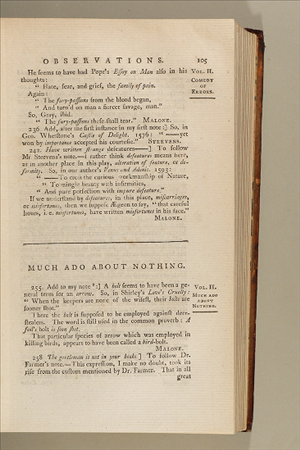 OBSERVATIONS. 105
He seems to have had Pope's Essay on Man also in his
thoughts:
" Hate, fear, and grief, the family of pain.
Again:
" The fury-passions from the blood began,
" And turn'd on man a fiercer savage, man."
So, Gray, ibid.
" The fury-passions these shall tear." MALONE.
236 Add, after the first instance in my first note :] So, in
Geo. Whetstone's Castle of Delight. 1576: " — yet
won by importance accepted his courtesie." STEEVENS.
242. Have written strange defeatures—] To follow
Mr Steevens's note.—I rather think defeatures means here,
as in another place in this play, alteration of feature, or de-
formity. So, in our author's Venus and Adonis. 1593:
" — To cross the curious workmanship of Nature,
" To mingle beauty with infirmities,
" And pure perfection with impure defeature."
If we understand by defeatures, in this place, miscarriages,
or misfortunes, then we suppose Ægeon to say, " that careful
hours, i. e. misfortunes, have written misfortunes in his face."
MALONE.
VOL. II.
COMEDY
OF
ERRORS.
MUCH ADO ABOUT NOTHING.
255. Add to my note :] A bolt seems to have been a ge-
neral term for an arrow. So, in Shirley's Love's Cruelty:
" When the keepers are none of the wisest, their bolts are
sooner shot."
There the bolt is supposed to be employed against deer-
stealers. The word is still used in the common proverb: A
fool's bolt is soon shot.
That particular species of arrow which was employed in
killing birds, appears to have been called a bird-bolt.
MALONE.
258 The gentleman is not in your books.] To follow Dr.
Farmer's note.—This expression, I make no doubt, took its
rise from the custom mentioned by Dr. Farmer. That in all
great
VOL. II.
MUCH ADO
ABOUT
NOTHING.